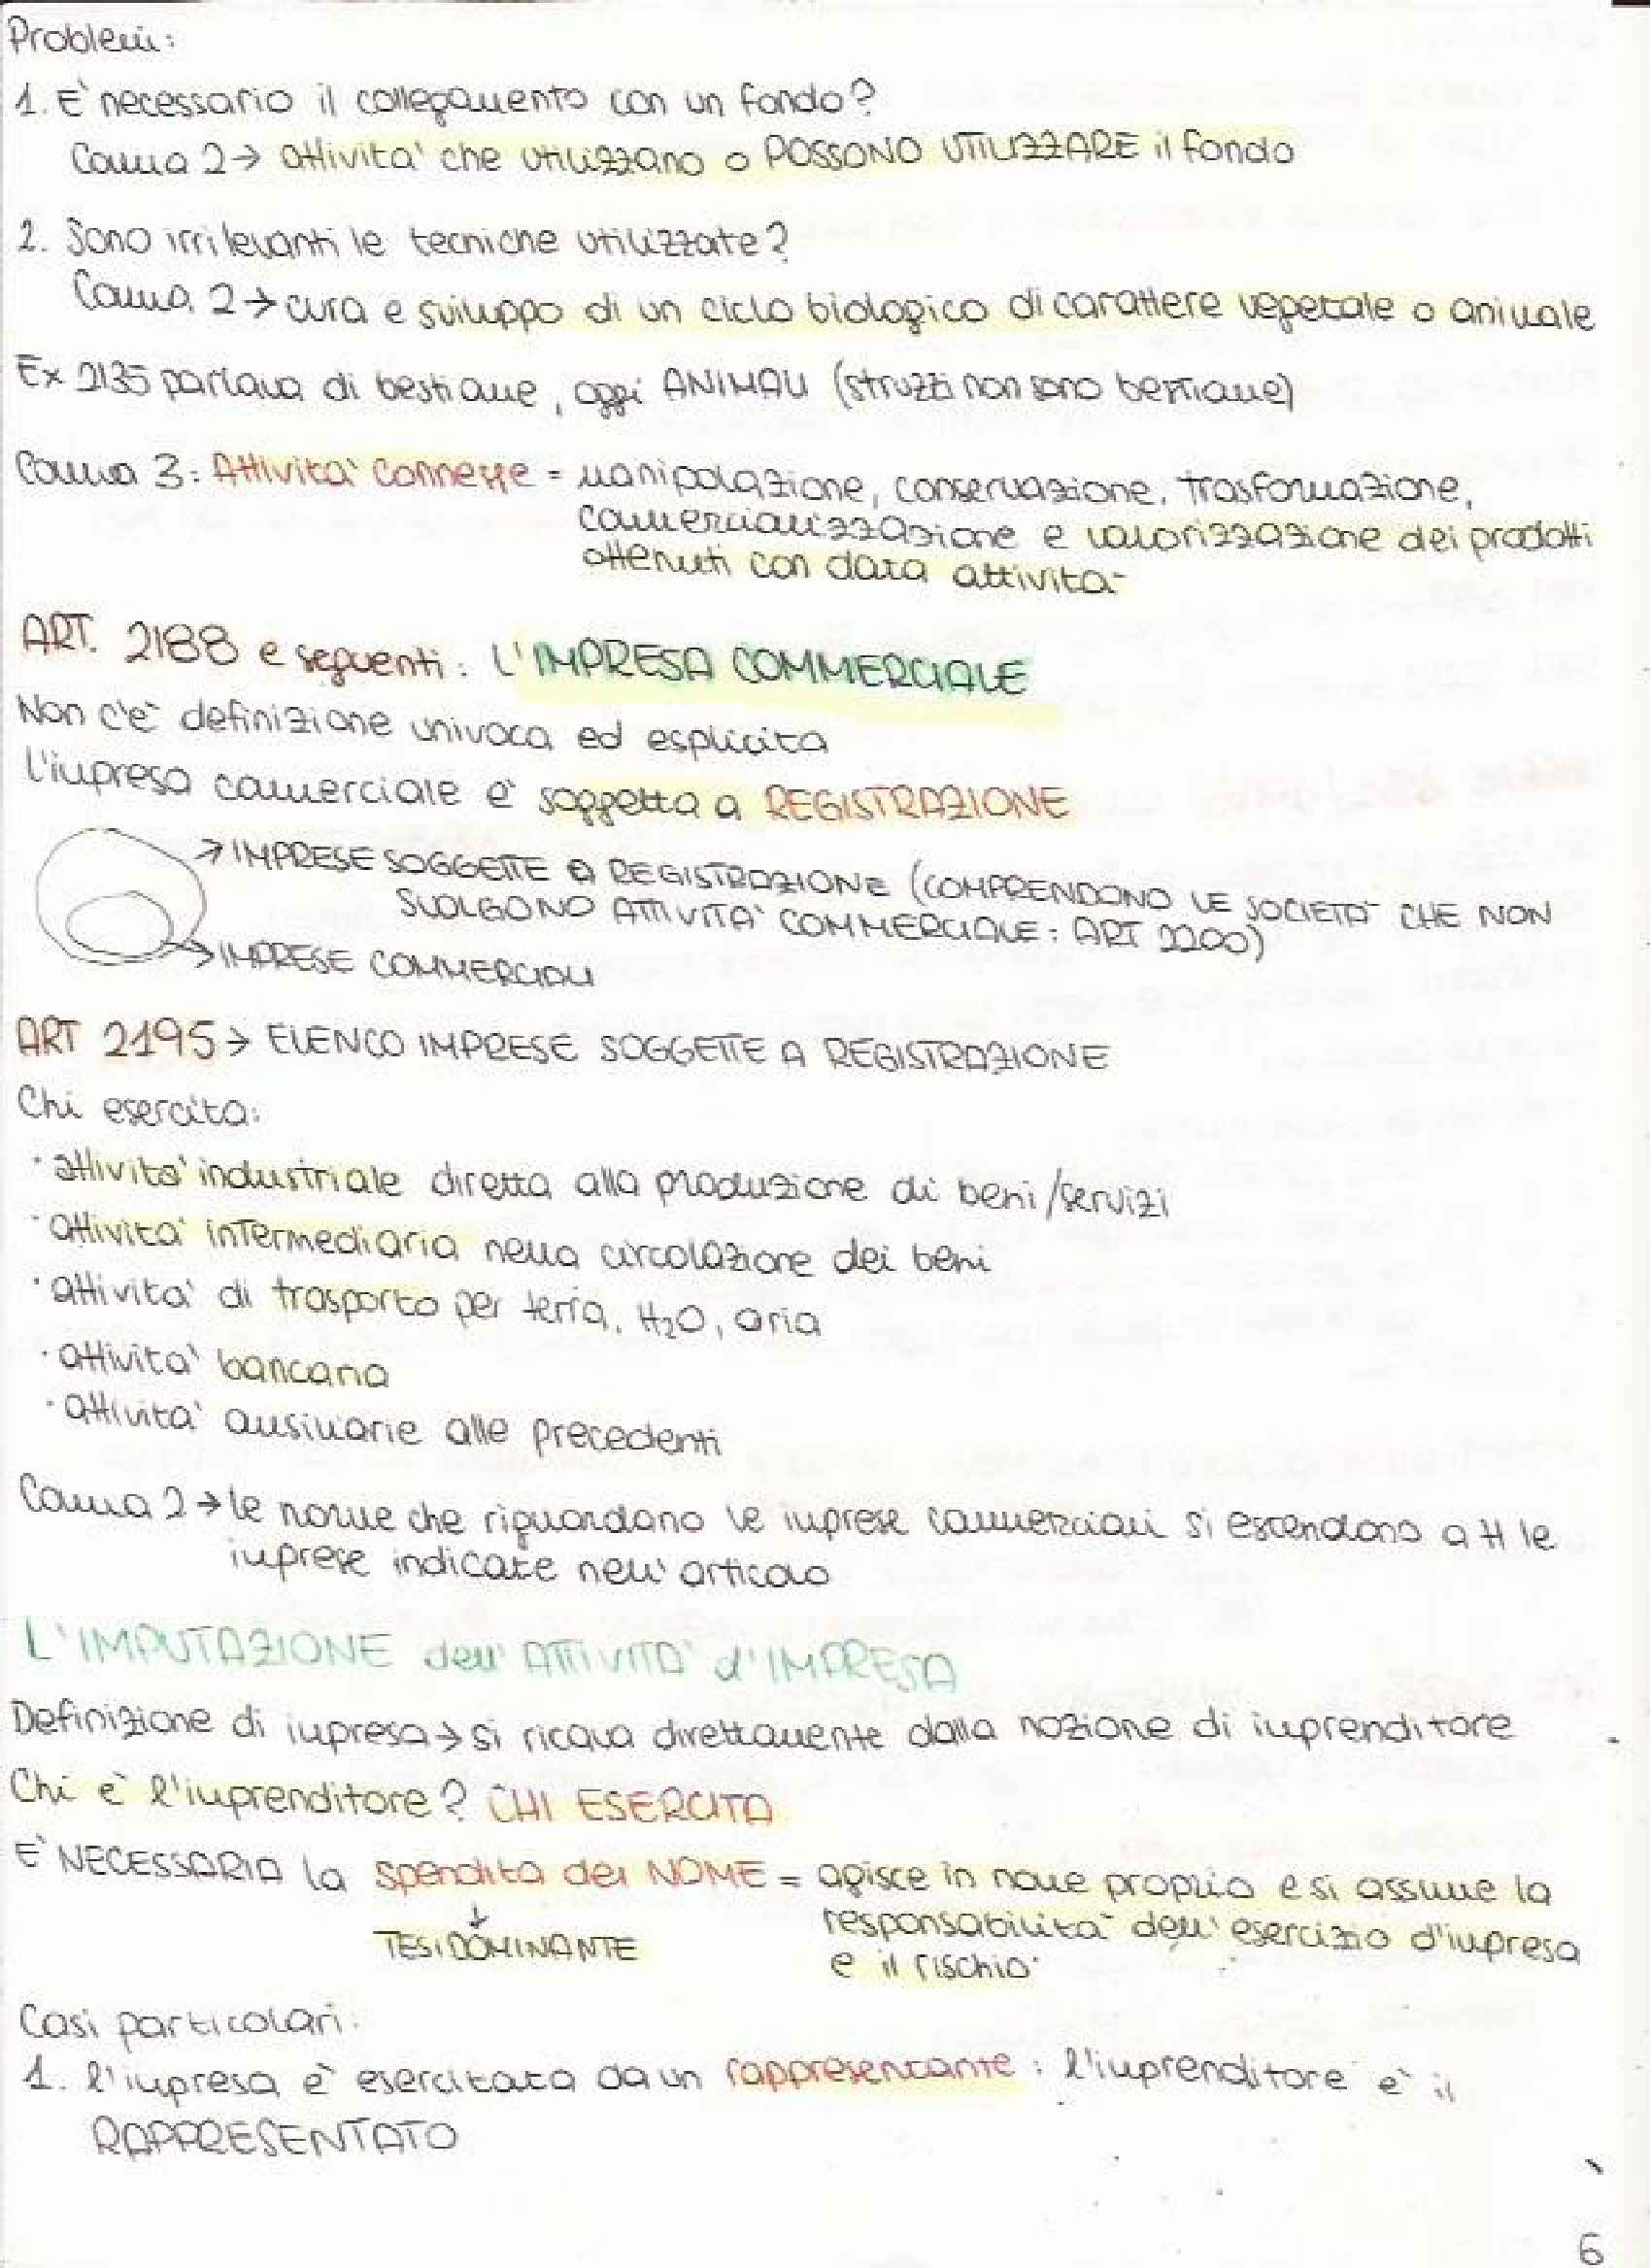 Problemi:
1. E' necessario il collegamento con un fondo?
Comma 2 → attività che utilizzano o POSSONO UTILIZZARE il fondo
2. Sono irrilevanti le tecniche utilizzate?
Comma 2 → cura e sviluppo di un ciclo biologico di carattere vegetale o animale
Ex 2135 parlava di bestiame, oggi ANIMALI (struzzi non sono bestiame)
Comma 3: Attività connesse = manipolazione, conservazione, trasformazione,
commercializzazione e valorizzazione dei prodotti
ottenuti con data attività
ART. 2188 e seguenti: L'IMPRESA COMMERCIALE
Non c'è definizione univoca ed esplicita
L'impresa commerciale è soggetta a REGISTRAZIONE
→ IMPRESE SOGGETTE A REGISTRAZIONE (COMPRENDONO LE SOCIETÀ CHE NON
SVOLGONO ATTIVITÀ COMMERCIALE: ART 2200)
→ IMPRESE COMMERCIALI
ART 2195 → ELENCO IMPRESE SOGGETTE A REGISTRAZIONE
Chi esercita:
· attività industriale diretta alla produzione di beni/servizi
· attività intermediaria nella circolazione dei beni
· attività di trasporto per terra, H2O, aria
· attività bancaria
· attività ausiliarie alle precedenti
Comma 2 → le norme che riguardano le imprese commerciali si estendono a tt le
imprese indicate nell'articolo
L'IMPUTAZIONE dell'ATTIVITÀ d'IMPRESA
Definizione di impresa → si ricava direttamente dalla nozione di imprenditore
Chi è l'imprenditore? CHI ESERCITA
E' NECESSARIA la spendita del NOME = agisce in nome proprio e si assume la
↓ responsabilità dell'esercizio d'impresa
TESI DOMINANTE
e il rischio
Casi particolari:
1. l'impresa è esercitata da un rappresentante: l'imprenditore è il
RAPPRESENTATO
6